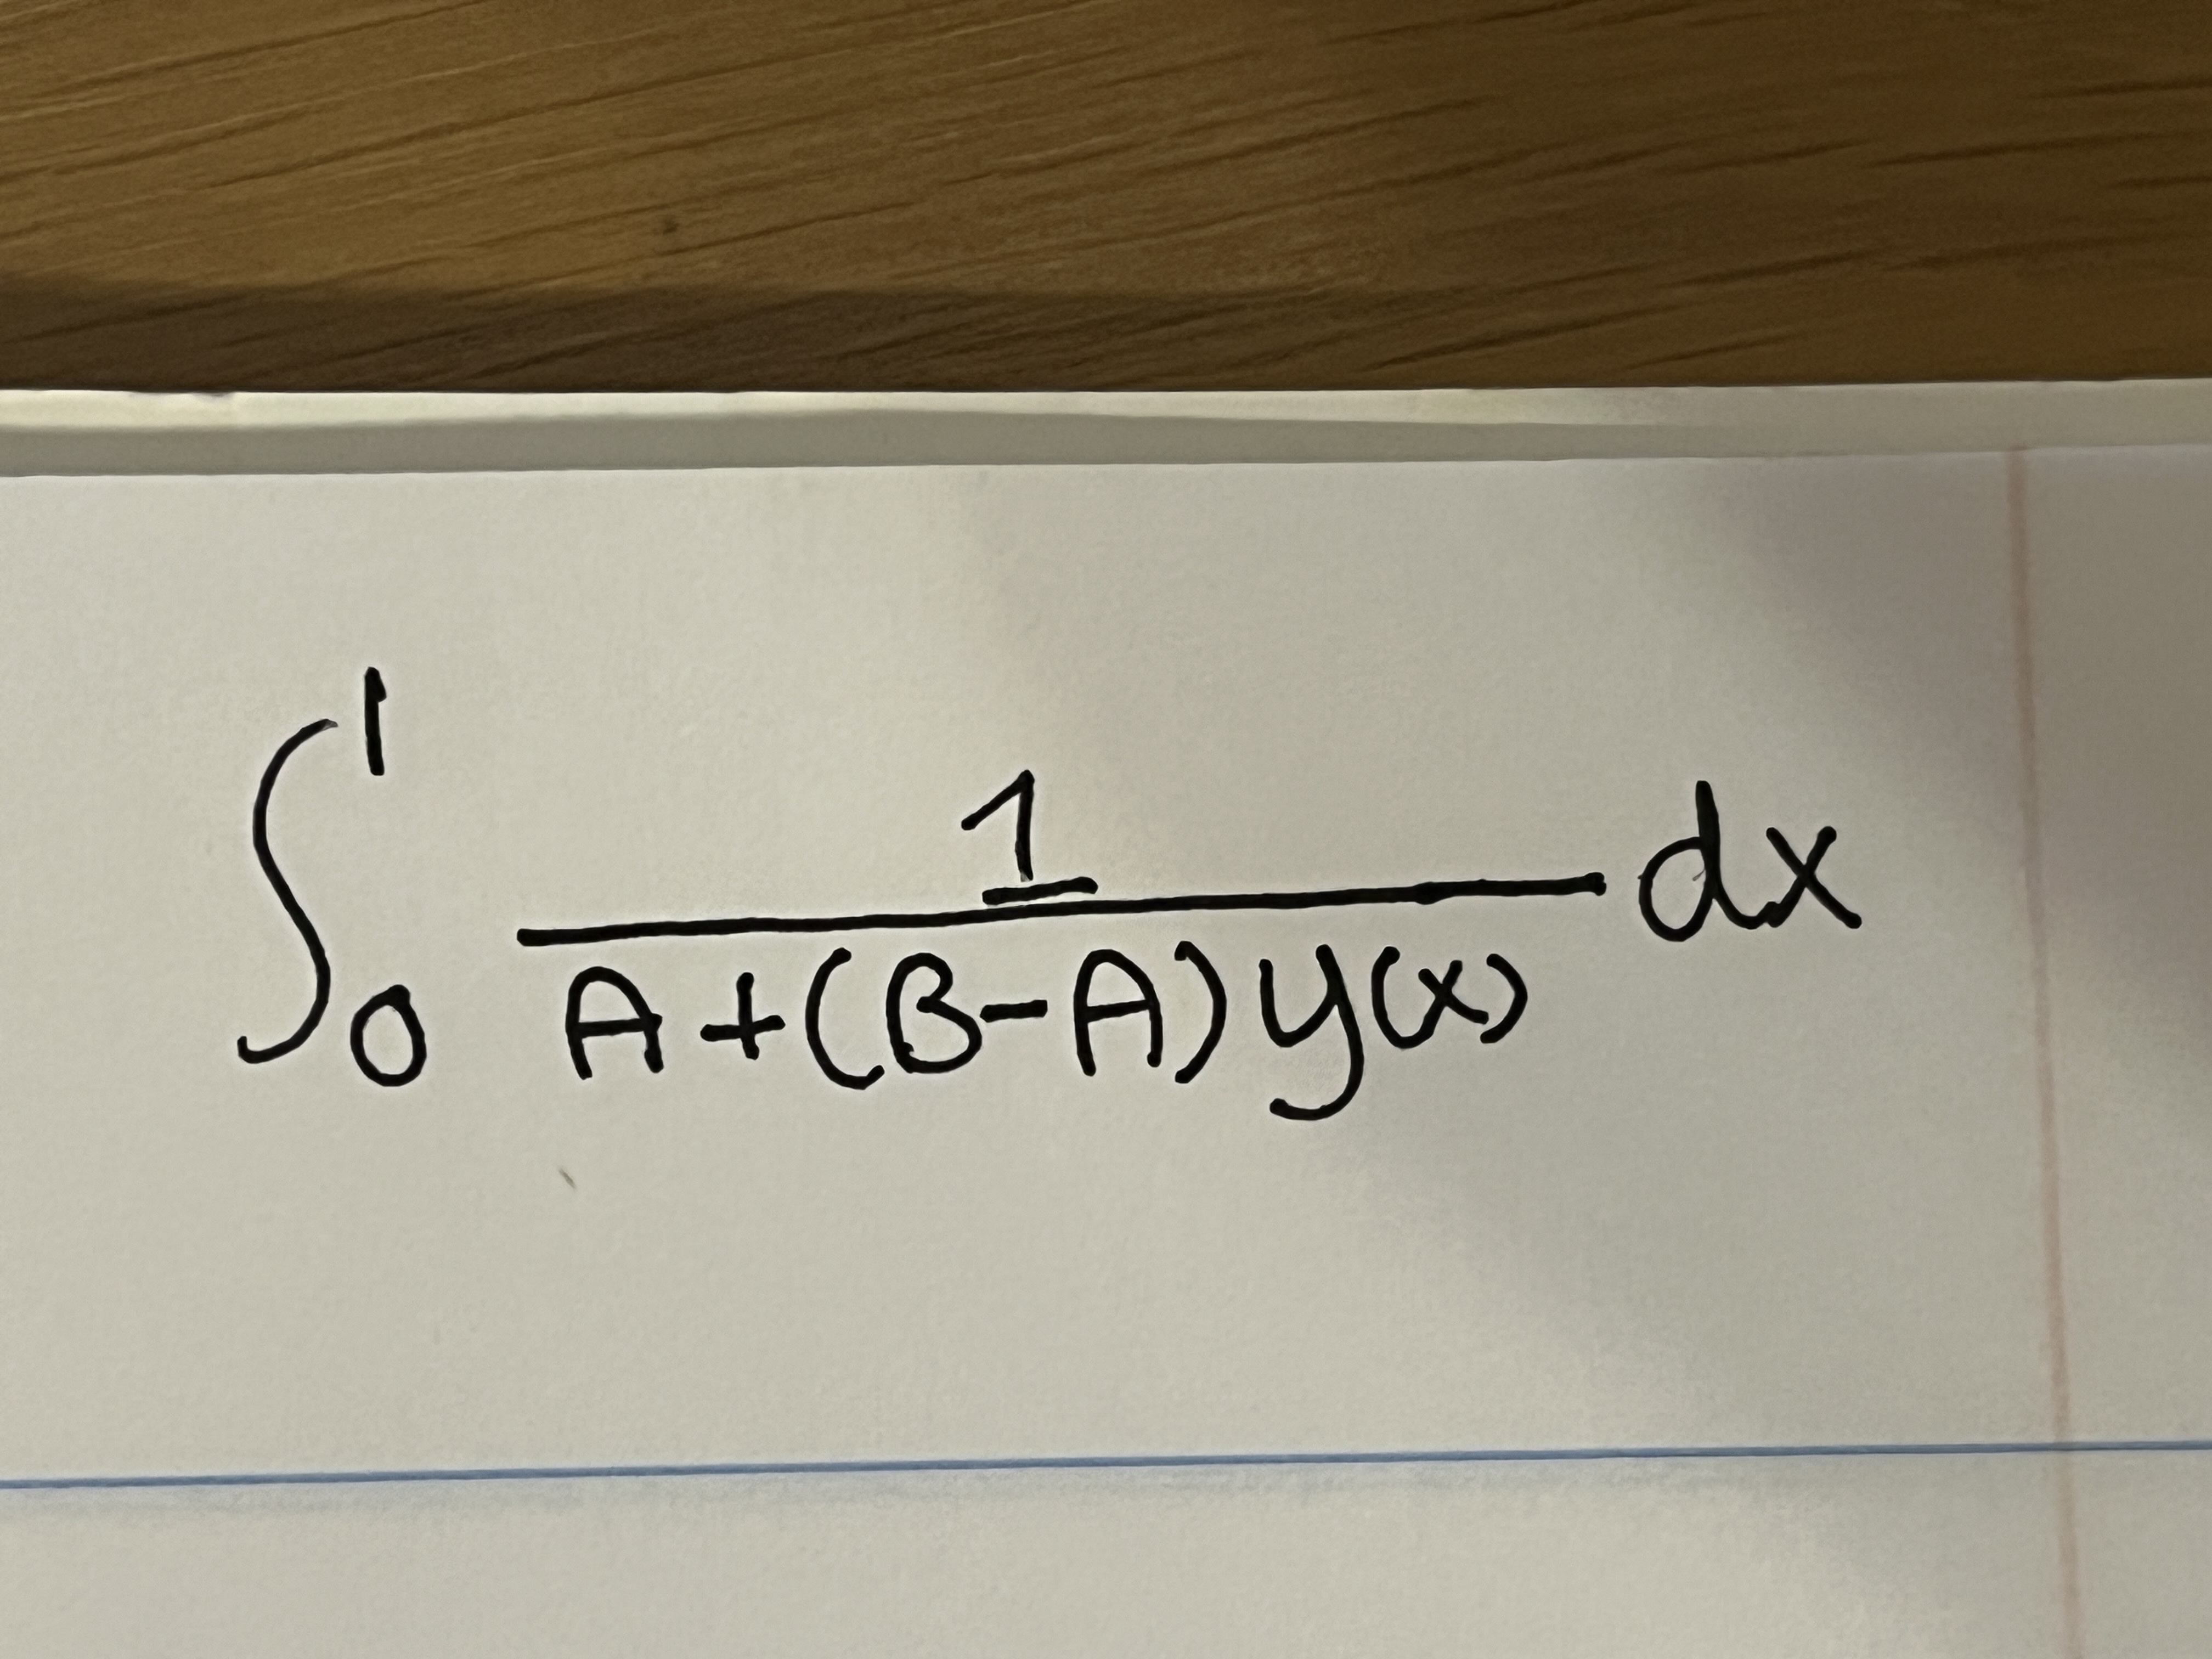 ∫₀¹ 1/(A+(B-A)y(x)) dx